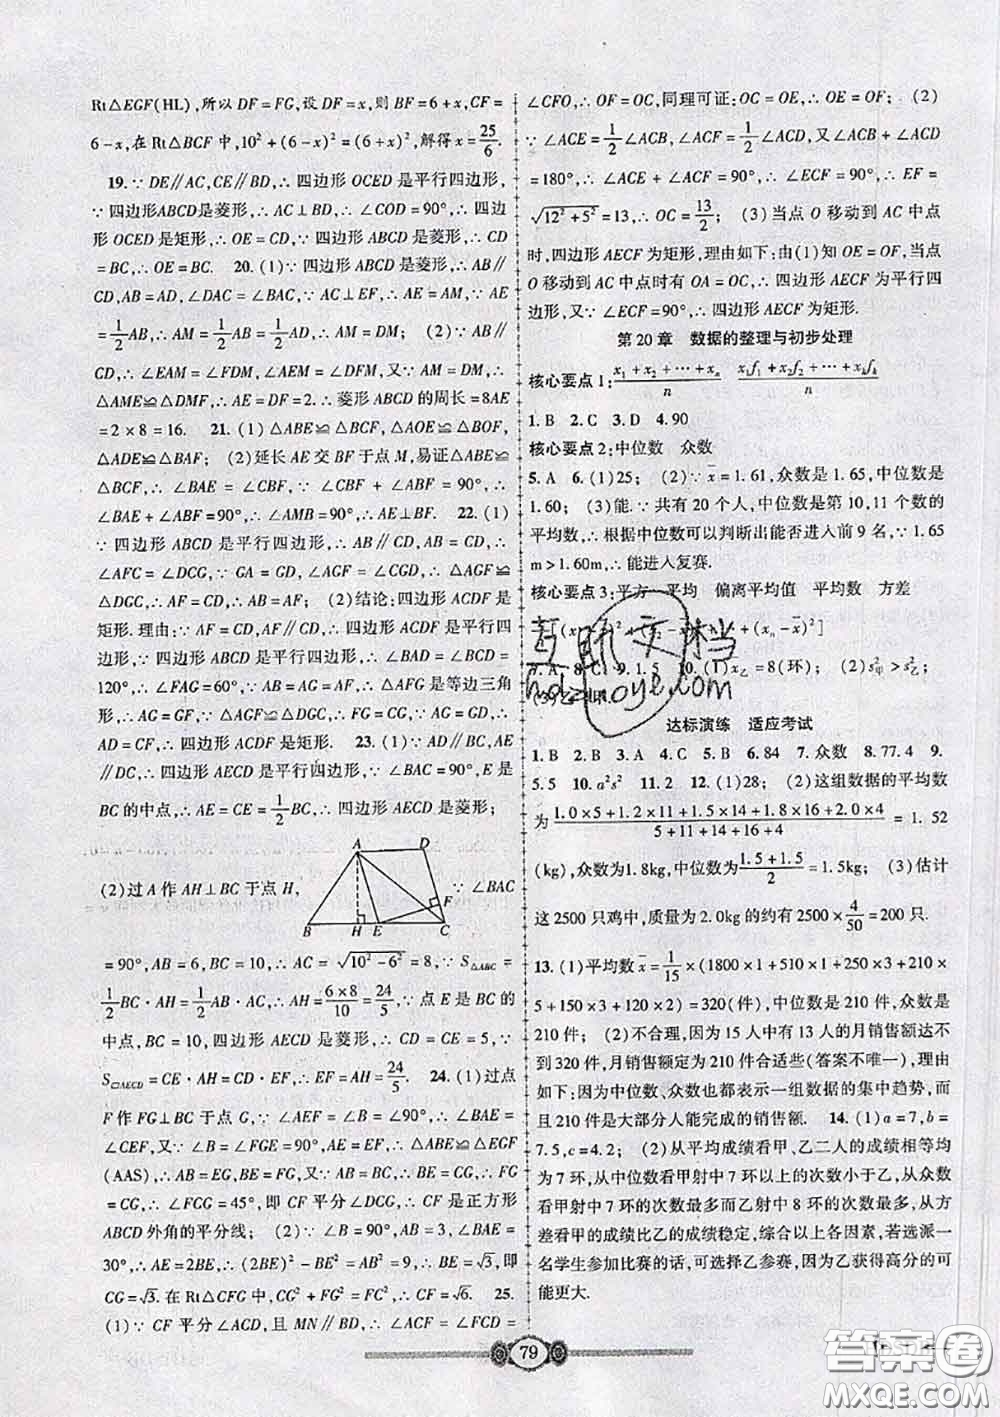 Rt△EGF(HL),所以 DF=FG,设 DF=x,则 BF=6+x,CF=
6-x,在 Rt△BCF 中,10²+(6-x)²=(6+x)²,解得 x=25/6.
19.∵ DE∥AC,CE∥BD,∴ 四边形 OCED 是平行四边形,
∵ 四边形ABCD是菱形,∴ AC⊥BD,∴ ∠COD=90°,∴ 四边
形 OCED 是矩形,∴ OE=CD,∵ 四边形 ABCD 是菱形,∴ CD
=BC,∴ OE=BC. 20.(1)∵ 四边形 ABCD 是菱形,∴ AB∥
CD,AB=AD,∠DAC=∠BAC,∵ AC⊥EF,∴ AE=AM,∵ AE
=1/2AB,∴ AM=1/2AB=1/2AD,∴ AM=DM; (2)∵ AB∥
CD,∴ ∠EAM=∠FDM,∠AEM=∠DFM,又∵ AM=DM,∴
△AME≌△DMF,∴ AE=DF=2.∴ 菱形 ABCD 的周长=8AE
=2×8=16. 21.(1)△ABE≌△BCF,△AOE≌△BOF,
△ADE≌△BAF; (2)延长 AE 交 BF 于点 M,易证△ABE≌
△BCF,∴ ∠BAE=∠CBF,∵ ∠CBF+∠ABF=90°,∴
∠BAE+∠ABF=90°,∴ ∠AMB=90°,∴ AE⊥BF. 22.(1)
∵ 四边形 ABCD 是平行四边形,∴ AB∥CD,AB=CD,∴
∠AFC=∠DCG,∵ GA=GD,∠AGF=∠CGD,∴ △AGF≌
△DGC,∴ AF=CD,∴ AB=AF; (2)结论:四边形 ACDF 是
矩形.理由:∵ AF=CD,AF∥CD,∴ 四边形 ACDF 是平行四
边形,∵ 四边形 ABCD 是平行四边形,∴ ∠BAD=∠BCD=
120°,∴ ∠FAG=60°,∵ AB=AG=AF,∴ △AFG 是等边三角
形,∴ AG=GF,∵ △AGF≌△DGC,∴ FG=CG,∵ AG=GD,∴
AD=CF,∴ 四边形 ACDF 是矩形. 23.(1)∵ AD∥BC,AE
∥DC,∴ 四边形 AECD 是平行四边形,∵ ∠BAC=90°,E 是
BC 的中点,∴ AE=CE=1/2BC,∴ 四边形 AECD 是菱形;
(2)过 A 作 AH⊥BC 于点 H,
A D F B H E C
∵ ∠BAC
=90°,AB=6,BC=10,∴ AC=√(10²-6²)=8,∵ S△ABC=
1/2BC·AH=1/2AB·AC,∴ AH=(6×8)/10=24/5,∵ 点 E 是 BC 的
中点,BC=10,四边形 AECD 是菱形,∴ CD=CE=5,∵
S▱AECD=CE·AH=CD·EF,∴ EF=AH=24/5. 24.(1)过点
F 作 FG⊥BC 于点 G,∵ ∠AEF=∠B=∠90°,∴ ∠BAE=
∠CEF,又∵ ∠B=∠FGE=90°,AE=EF,∴ △ABE≌△EGF
(AAS),∴ AB=EG,BE=FG,又∵ AB=BC,∴ BE=CG,∴ FG
=CG,∴ ∠FCG=45°,即 CF 平分∠DCG,∴ CF 是正方形
ABCD 外角的平分线; (2)∵ ∠B=90°,AB=3,∠BAE=
30°,∴ AE=2BE,∴ (2BE)²-BE²=AB²=9,∴ BE=√3,即
CG=√3.在 Rt△CFG 中,CG²+FG²=FC²,∴ CF=√6. 25.
(1)∵ CF 平分∠ACD,且 MN∥BD,∴ ∠ACF=∠FCD=
∠CFO,∴ OF=OC,同理可证:OC=OE,∴ OE=OF; (2)
∵ ∠ACE=1/2∠ACB,∠ACF=1/2∠ACD,又∠ACB+∠ACD
=180°,∴ ∠ACE+∠ACF=90°,∴ ∠ECF=90°,∴ EF=
√(12²+5²)=13,∴ OC=13/2; (3)当点 O 移动到 AC 中点
时,四边形 AECF 为矩形,理由如下:由(1)知 OE=OF,当点
O 移动到 AC 中点时有 OA=OC,∴ 四边形 AECF 为平行四
边形,又∵ ∠ECF=90°,∴ 四边形 AECF 为矩形.
第 20 章 数据的整理与初步处理
核心要点 1:(x₁+x₂+⋯+xₙ)/n (x₁f₁+x₂f₂+⋯+xₖfₖ)/n
1.B 2.C 3.D 4.90
核心要点 2:中位数 众数
5.A 6.(1)25; (2)∵ x̄=1.61,众数是 1.65,中位数是
1.60; (3)能.∵ 共有 20 个人,中位数是第 10,11 个数的
平均数,∴ 根据中位数可以判断出能否进入前 9 名,∵ 1.65
m>1.60m,∴ 能进入复赛.
核心要点 3:平方 平均 偏离平均值 平均数 方差
+(xₙ-x̄)²]
7.A 8.C 9.1.5 10.(1)x̄乙=8(环); (2)s²甲>s²乙;
达标演练 适应考试
1.B 2.B 3.A 4.C 5.B 6.84 7.众数 8.77.4 9.
5.5 10.a²s² 11.2 12.(1)28; (2)这组数据的平均数
为(1.0×5+1.2×11+1.5×14+1.8×16+2.0×4)/(5+11+14+16+4)=1.52
(kg),众数为1.8kg,中位数为(1.5+1.5)/2=1.5kg; (3)估计
这 2500 只鸡中,质量为 2.0kg 的约有 2500×4/50=200 只.
13.(1)平均数x̄=1/15×(1800×1+510×1+250×3+210×
5+150×3+120×2)=320(件),中位数是 210 件,众数是
210 件; (2)不合理,因为 15 人中有 13 人的月销售额达不
到 320 件,月销售额定为 210 件合适些(答案不唯一),理由
如下:因为中位数、众数也都表示一组数据的集中趋势,而
且 210 件是大部分人能完成的销售额. 14.(1)a=7,b=
7.5,c=4.2; (2)从平均成绩看甲、乙二人的成绩相等均
为 7 环,从中位数看甲射中 7 环以上的次数小于乙,从众数
看甲射中 7 环的次数最多而乙射中 8 环的次数最多,从方
差看甲的成绩比乙的成绩稳定,综合以上各因素,若选派一
名学生参加比赛的话,可选择乙参赛,因为乙获得高分的可
能更大.
79
答案圈
MXQE.COM